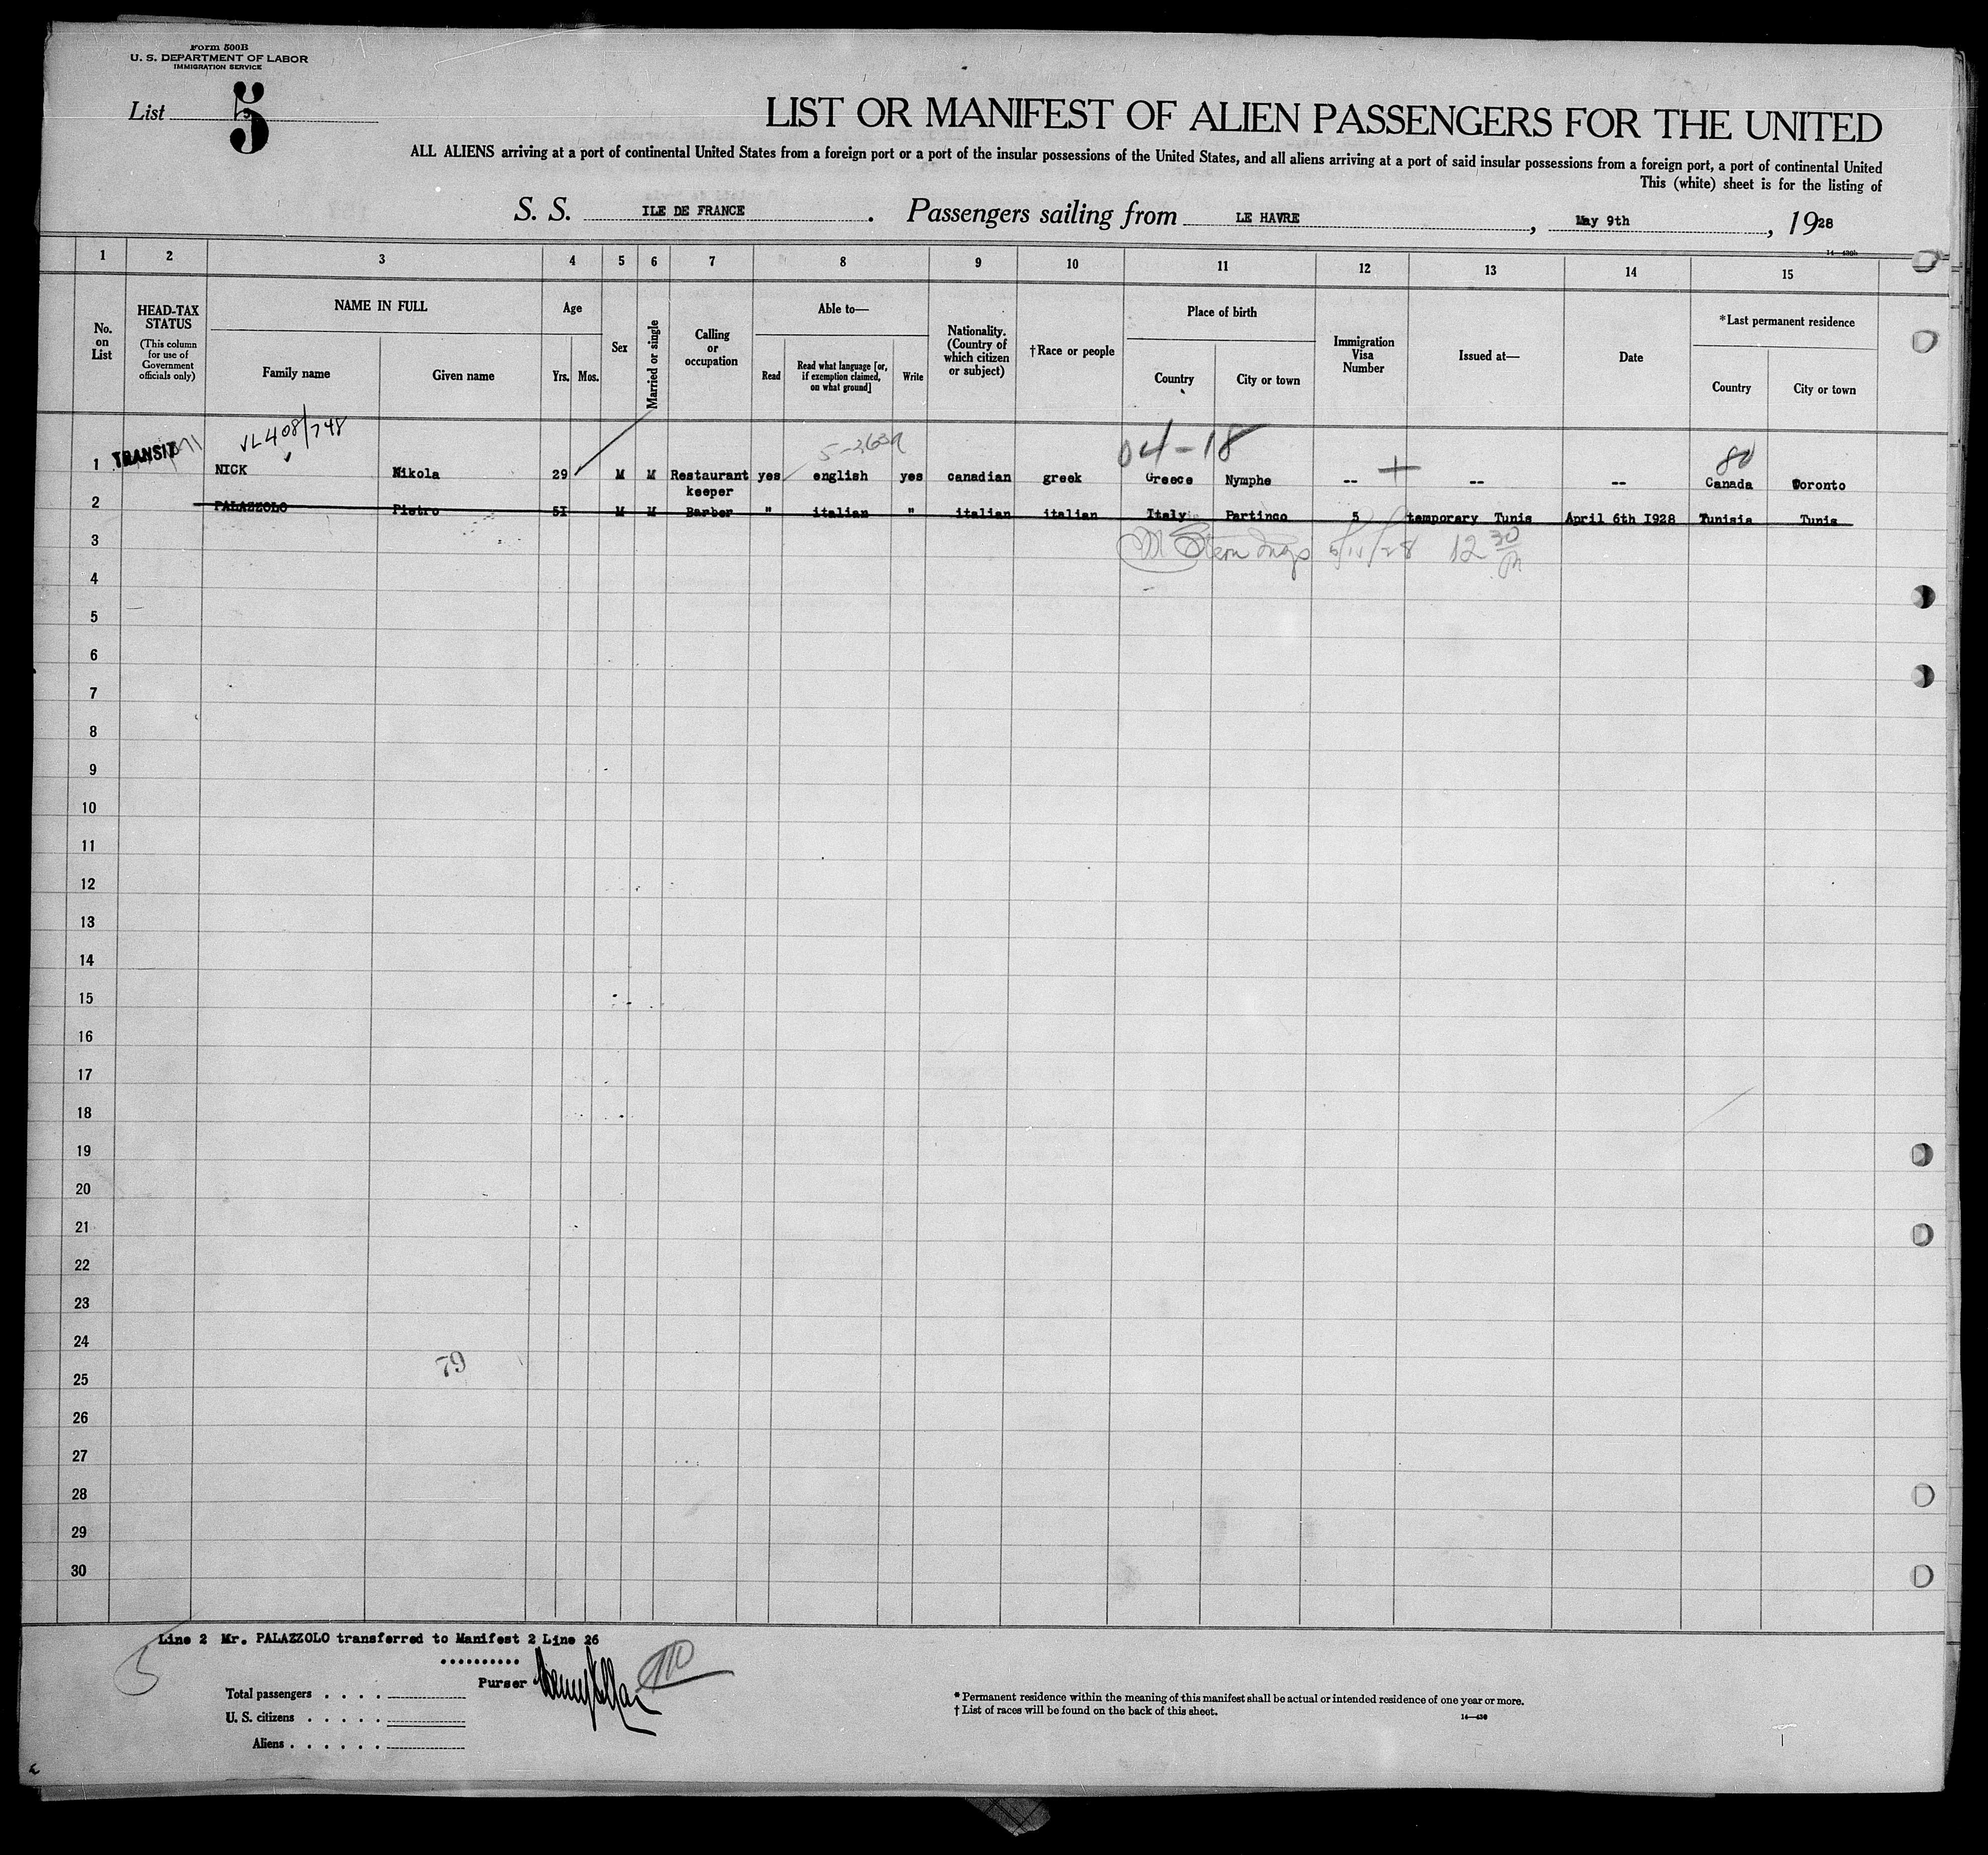 Form 500B
U. S. DEPARTMENT OF LABOR
IMMIGRATION SERVICE
List 5
LIST OR MANIFEST OF ALIEN PASSENGERS FOR THE UNITED
ALL ALIENS arriving at a port of continental United States from a foreign port or a port of the insular possessions of the United States, and all aliens arriving at a port of said insular possessions from a foreign port, a port of continental United
This (white) sheet is for the listing of
S. S. ILE DE FRANCE . Passengers sailing from LE HAVRE , May 9th , 1928
1 2 3 4 5 6 7 8 9 10 11 12 13 14 15
No. on List
HEAD-TAX STATUS
(This column for use of Government officials only)
NAME IN FULL
Family name
Given name
Age
Yrs. Mos.
Sex
Married or single
Calling or occupation
Able to—
Read
Read what language [or, if exemption claimed, on what ground]
Write
Nationality. (Country of which citizen or subject)
†Race or people
Place of birth
Country
City or town
Immigration Visa Number
Issued at—
Date
*Last permanent residence
Country
City or town
VL408/748
04-18
80
1 TRANSIT NICK Nikola 29 M M Restaurant keeper yes english yes canadian greek Greece Nymphe -- -- -- Canada Toronto
2 PALAZZOLO Pietro 5I M M Barber " italian " italian italian Italy Partinco 5 temporary Tunis April 6th I928 Tunisia Tunis
12 30
3
4
5
6
7
8
9
10
11
12
13
14
15
16
17
18
19
20
21
22
23
24
79
25
26
27
28
29
30
Line 2 Mr. PALAZZOLO transferred to Manifest 2 Line 26
Purser
Total passengers . . . .
U. S. citizens . . . . .
Aliens . . . . . .
* Permanent residence within the meaning of this manifest shall be actual or intended residence of one year or more.
† List of races will be found on the back of this sheet.
14—430